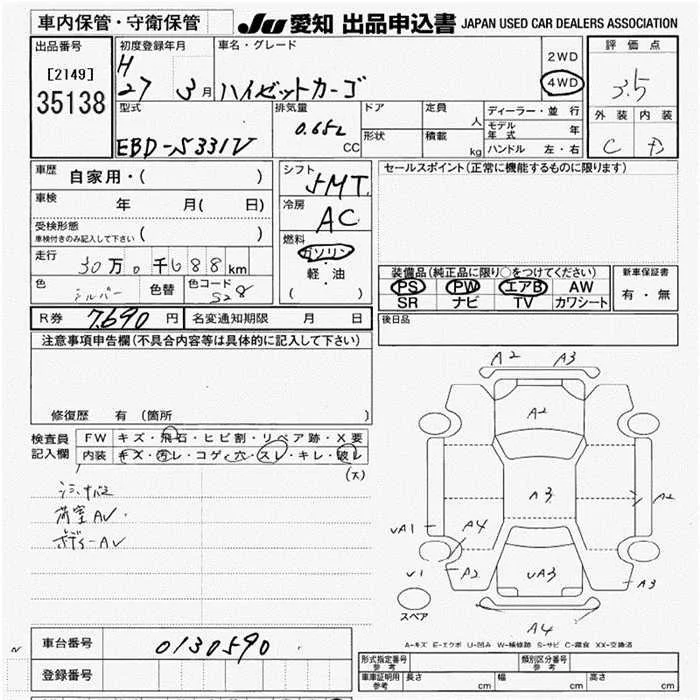 車内保管・守衛保管 JU 愛知 出品申込書 JAPAN USED CAR DEALERS ASSOCIATION
出品番号 初度登録年月 車名・グレード 2WD 評価点
[2149] H 27 3月 ハイゼットカーゴ 4WD 3.5
35138 型式 排気量 ドア 定員 人 ディーラー・並行 外装 内装
EBD-S331V 0.65L CC 形状 積載 kg モデル年式 年 C D
ハンドル 左・右
車歴 自家用・( ) シフト 5MT セールスポイント(正常に機能するものに限ります)
車検 年 月( 日) 冷房 AC
受検形態 ( )
車検付きのみ記入して下さい
燃料 ガソリン・軽・油 ( )
走行 30万0千688km
色 シルバー 色替 色コード S28
装備品(純正品に限り○をつけてください) 新車保証書
PS PW エアB AW 有・無
SR ナビ TV カワシート
R券 7,690円 名変通知期限 月 日 後日品
注意事項申告欄(不具合内容等は具体的に記入して下さい)
修復歴 有(箇所 )
検査員記入欄 FW キズ・飛石・ヒビ割・リペア跡・X要
内装 キズ・汚レ・コゲ・穴・スレ・キレ・破レ
(x)
荷室AV.
ボディーAV
A2 A3
A2
A3 A2
UA1 A4
U1 A2 UA3 A3
スペア
A4
A-キズ E-エクボ U-凹み W-補修跡 S-サビ C-腐食 XX-交換済
車台番号 0130590
登録番号
形式指定番号 参考 類別区分番号 参考
車庫証明用 参考 長さ cm 幅 cm 高さ cm